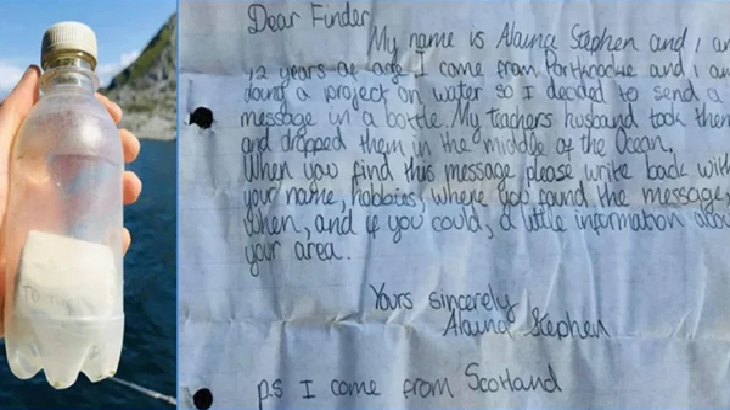 TO THE
Dear Finder
My name is Alaina Stephen and I am
12 years of age I come from Portknockie and I am
doing a project on water so I decided to send a
message in a bottle. My teachers husband took them
and dropped them in the middle of the Ocean.
When you find this message please write back with
your name, hobbies, where you found the message,
when, and if you could, a little information about
your area.
Yours sincerely
Alaina Stephen
p.s I come from Scotland